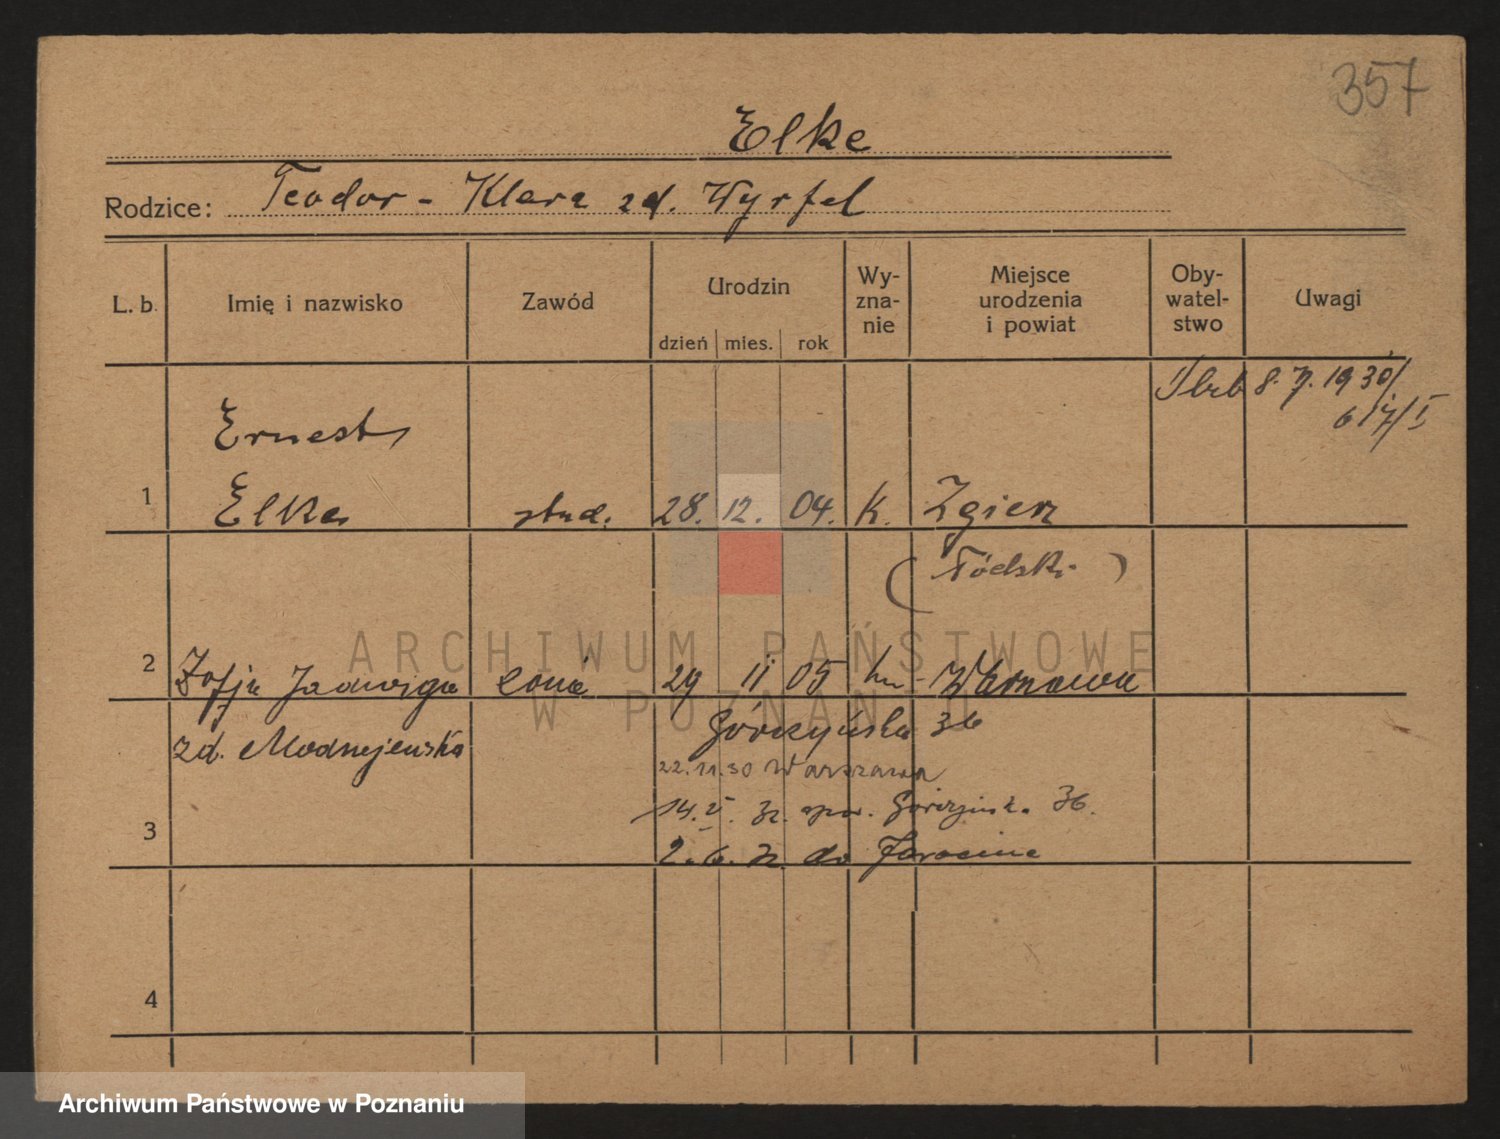 357
Elke
Rodzice: Teodor - Klara zd. Wyrfel
L. b. Imię i nazwisko Zawód Urodzin dzień mies. rok Wy-zna-nie Miejsce urodzenia i powiat Oby-watel-stwo Uwagi
8. 7. 1930/
617/I
Ernest
1 Elke stud. 28. 12. 04. K. Zgierz
( Łódzki )
2 Zofja Jadwiga żona 29 11 05 Warszawa
ARCHIWUM PAŃSTWOWE
W POZNANIU
zd. Modrzejewska Górczyńska 36
22.11.30 Warszawa
14. V. 31. spow. Górczyńska 36.
3 2. 6. 32 do Jarocina
4
Archiwum Państwowe w Poznaniu